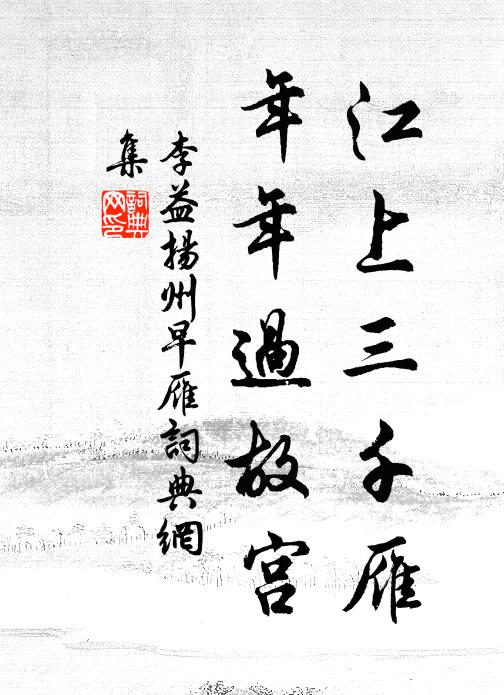 江上三千雁
年年過故宮
李益揚州早雁詞典網
集
詞典
网印